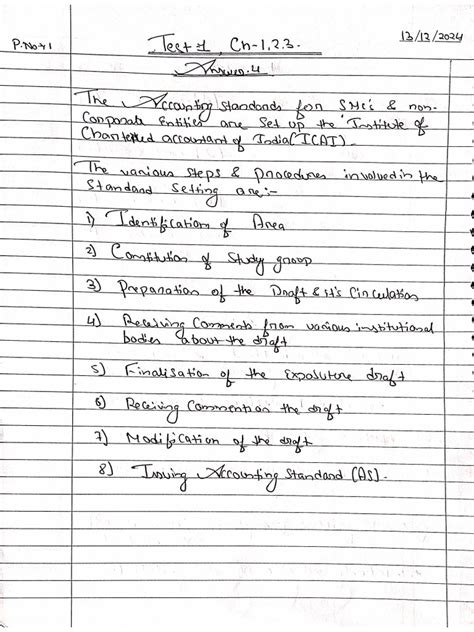 P.No-1 Test-1, Ch-1,2,3. 13/12/2024
Answer-4
The Accounting standards for SMC's & non-
Corporate Entities are Set up the Institute of
Chartered accountant of India (ICAI).
The various steps & procedures involved in the
Standard Setting are:-
1) Identification of Area
2) Constitution of Study group
3) Preparation of the Draft & it's Circulation
4) Receiving Comments from various institutional
bodies about the draft
5) Finalisation of the Exposuture draft
6) Receiving Comment on the draft
7) Modification of the draft
8) Issuing Accounting Standard (AS).